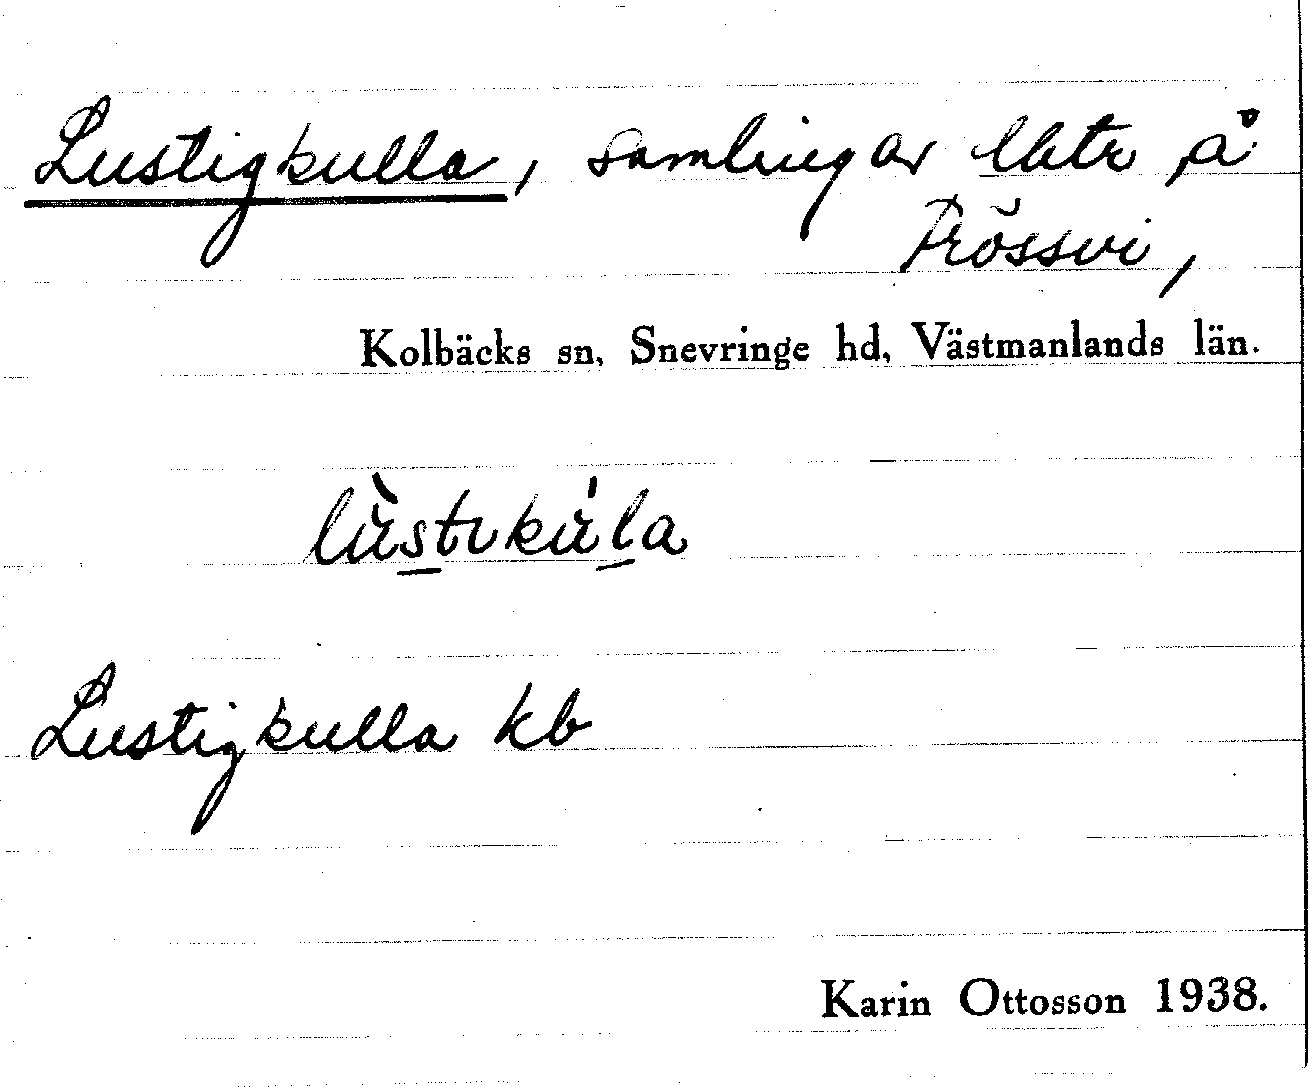 Lustigkulla, samling av lhtr å
Prössvi,
Kolbäcks sn, Snevringe hd, Västmanlands län.
lùstɩkù́la
Lustigkulla kb
Karin Ottosson 1938.